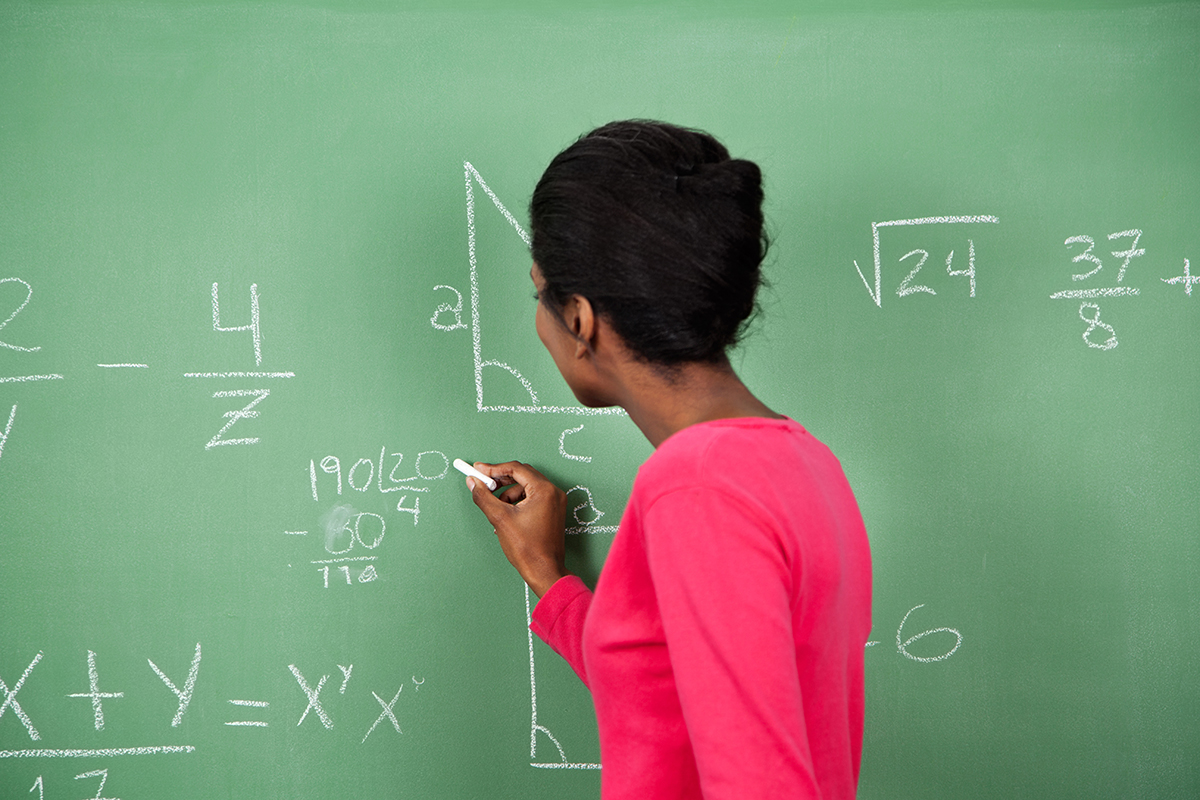 2 - 4/z
a
c
√24
37/8 +
190 | 20
4
- 80
110
a
- 6
X + Y = X^Y X^Y
17